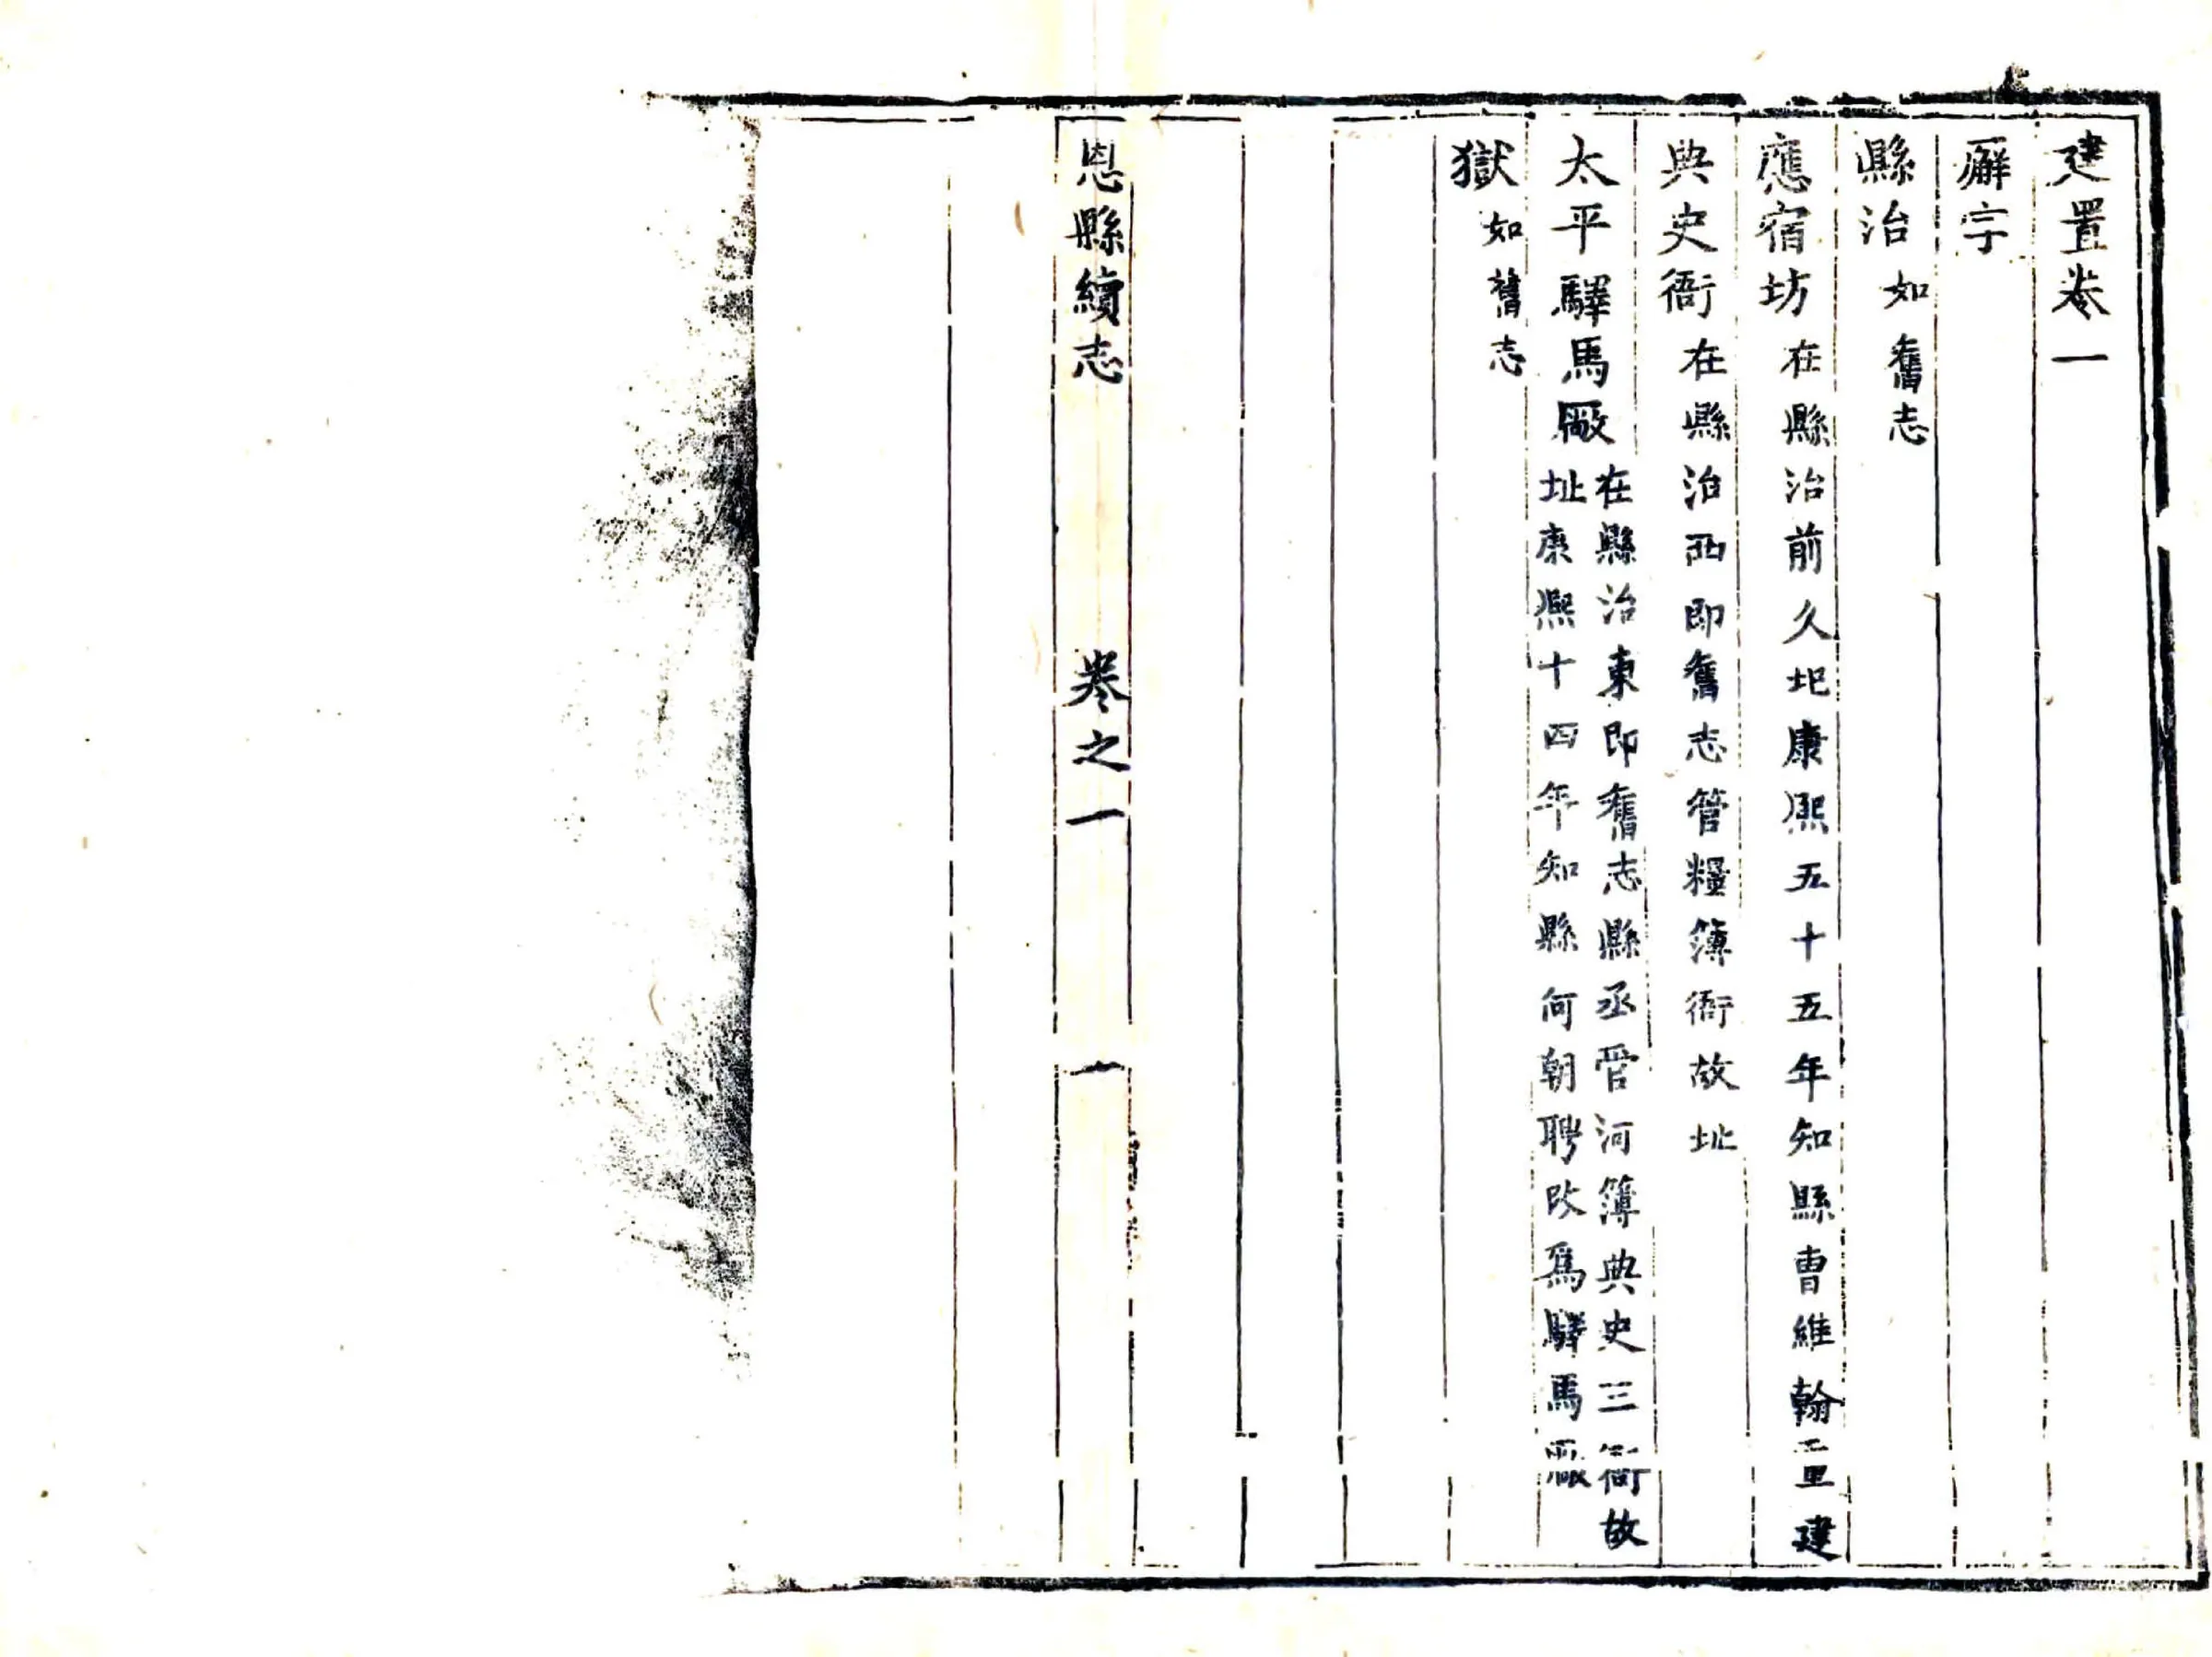 建置卷一
廨宇
縣治如舊志
應宿坊在縣治前久圯康熙五十五年知縣曹維翰重建
典史衙在縣治西即舊志管糧簿衙故址
太平驛馬厰在縣治東即舊志縣丞管河簿典史三衙故
址康熙十四年知縣何朝聘改爲驛馬厰
獄如舊志
恩縣續志 卷之一 一